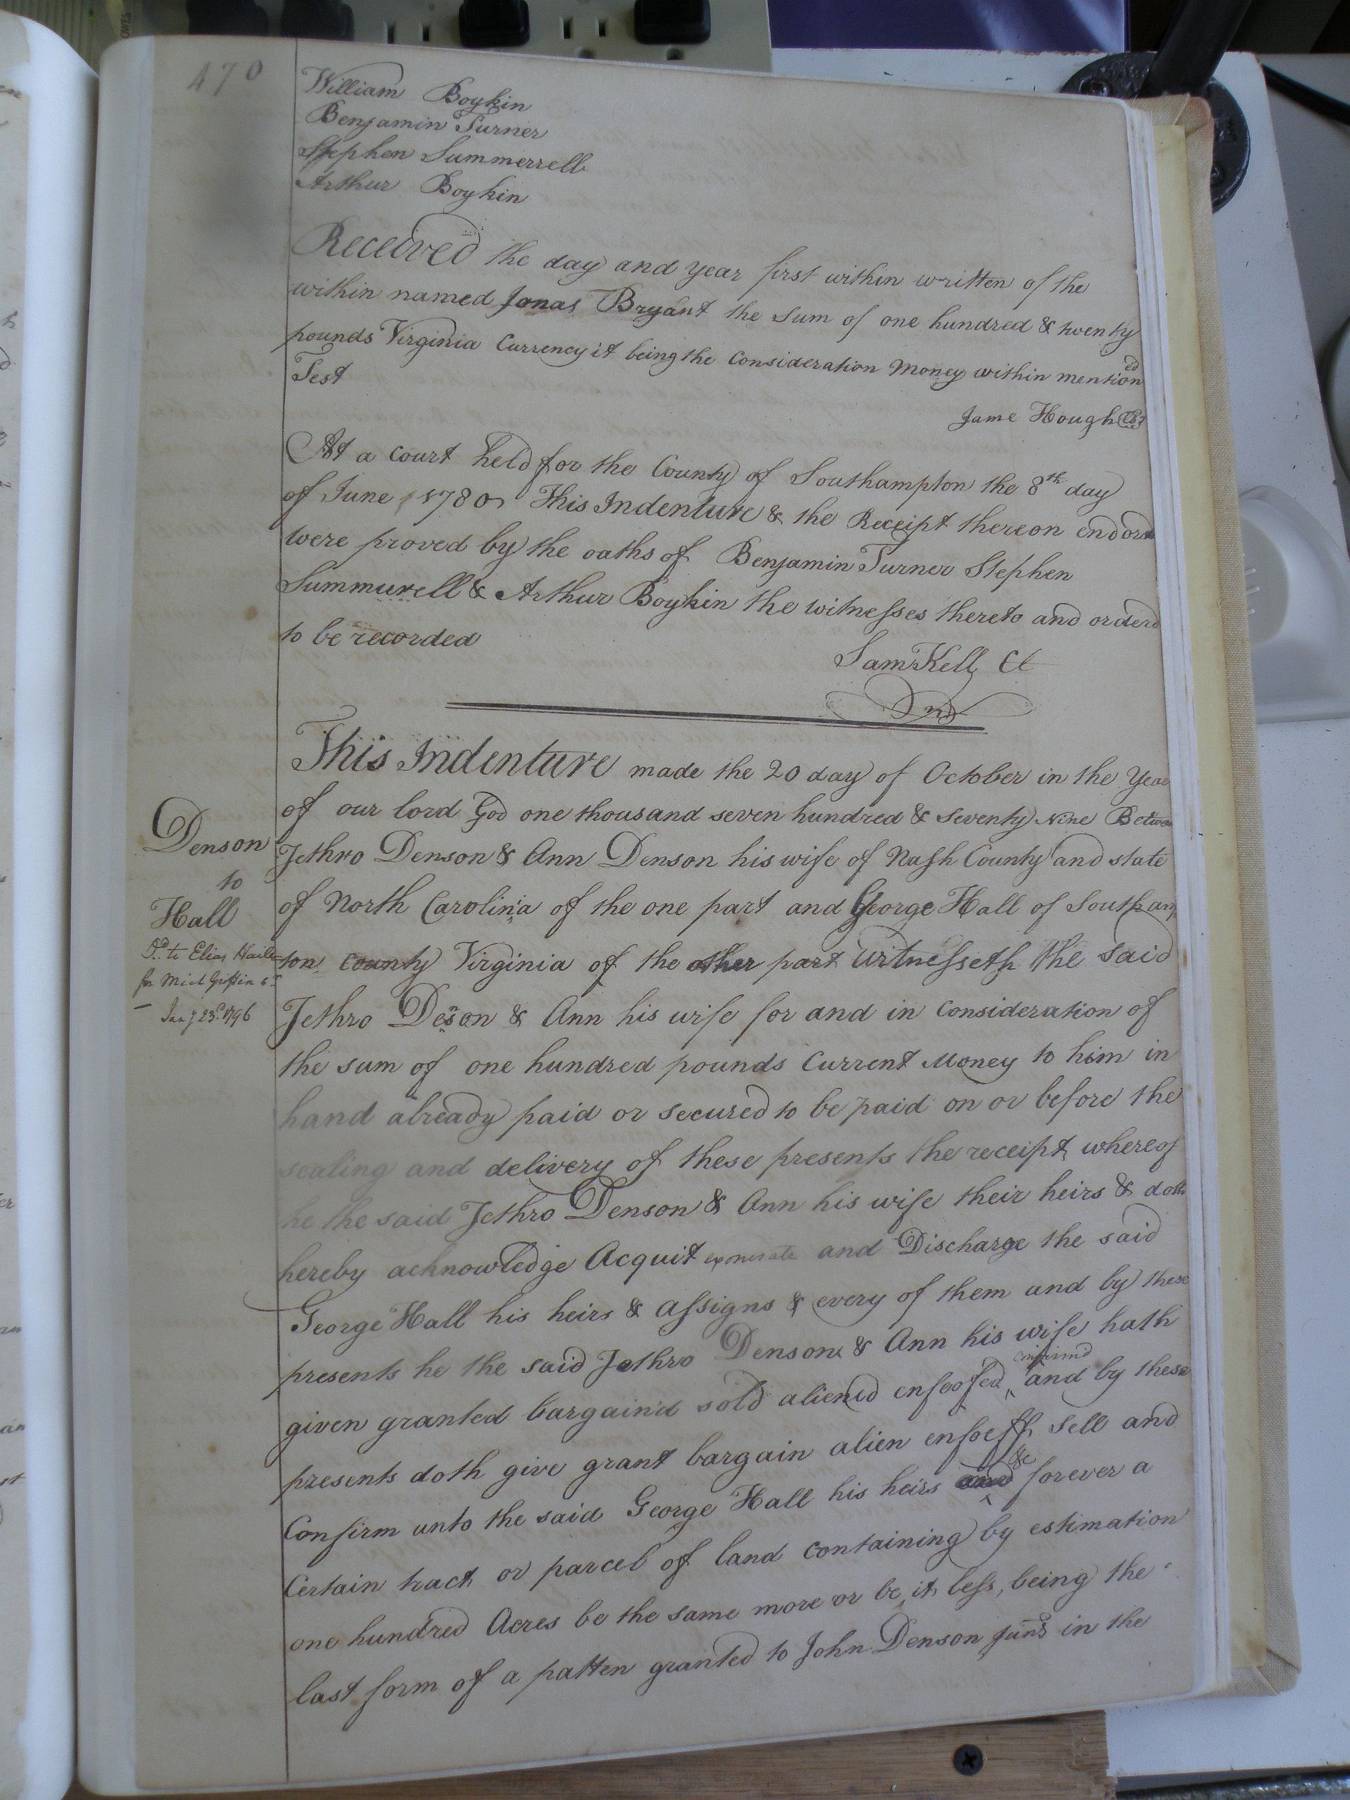 470
William Boykin
Benjamin Turner
Stephen Summerrell
Arthur Boykin
Received the day and year first within written of the
within named Jonas Bryant the Sum of one hundred & twenty
pounds Virginia Currency it being the Consideration Money within mentioned
Test
Jame Hough
At a Court held for the County of Southampton the 8th day
of June 1780 This Indenture & the Receipt thereon endors
were proved by the oaths of Benjamin Turner Stephen
Summurell & Arthur Boykin the witnesses thereto and orderd
to be recorded
Sam Kell Ct
This Indenture made the 20 day of October in the Year
of our lord God one thousand seven hundred & Seventy Nine Between
Denson
Jethro Denson & Ann Denson his wife of Nash County and state
to
of North Carolina of the one part and George Hall of Southamp
Hall
ton County Virginia of the other part Witnesseth the said
Dd. to Elias
for Mich Griffin
Jany 23d. 1796
Jethro Deson & Ann his wife for and in Consideration of
the sum of one hundred pounds Current Money to him in
hand already paid or secured to be paid on or before the
sealing and delivery of these presents the receipt whereof
he the said Jethro Denson & Ann his wife their heirs & doth
hereby acknowledge Acquit exonerate and Discharge the said
George Hall his heirs & assigns & every of them and by these
presents he the said Jethro Denson & Ann his wife hath
given granted bargain'd sold aliened enfeofed confirmd and by these
presents doth give grant bargain alien enfoeff sell and
Confirm unto the said George Hall his heirs &c forever a
Certain tract or parcel of land Containing by estimation
one hundred Acres be the same more or be it less, being the
last form of a patten granted to John Denson junr in the